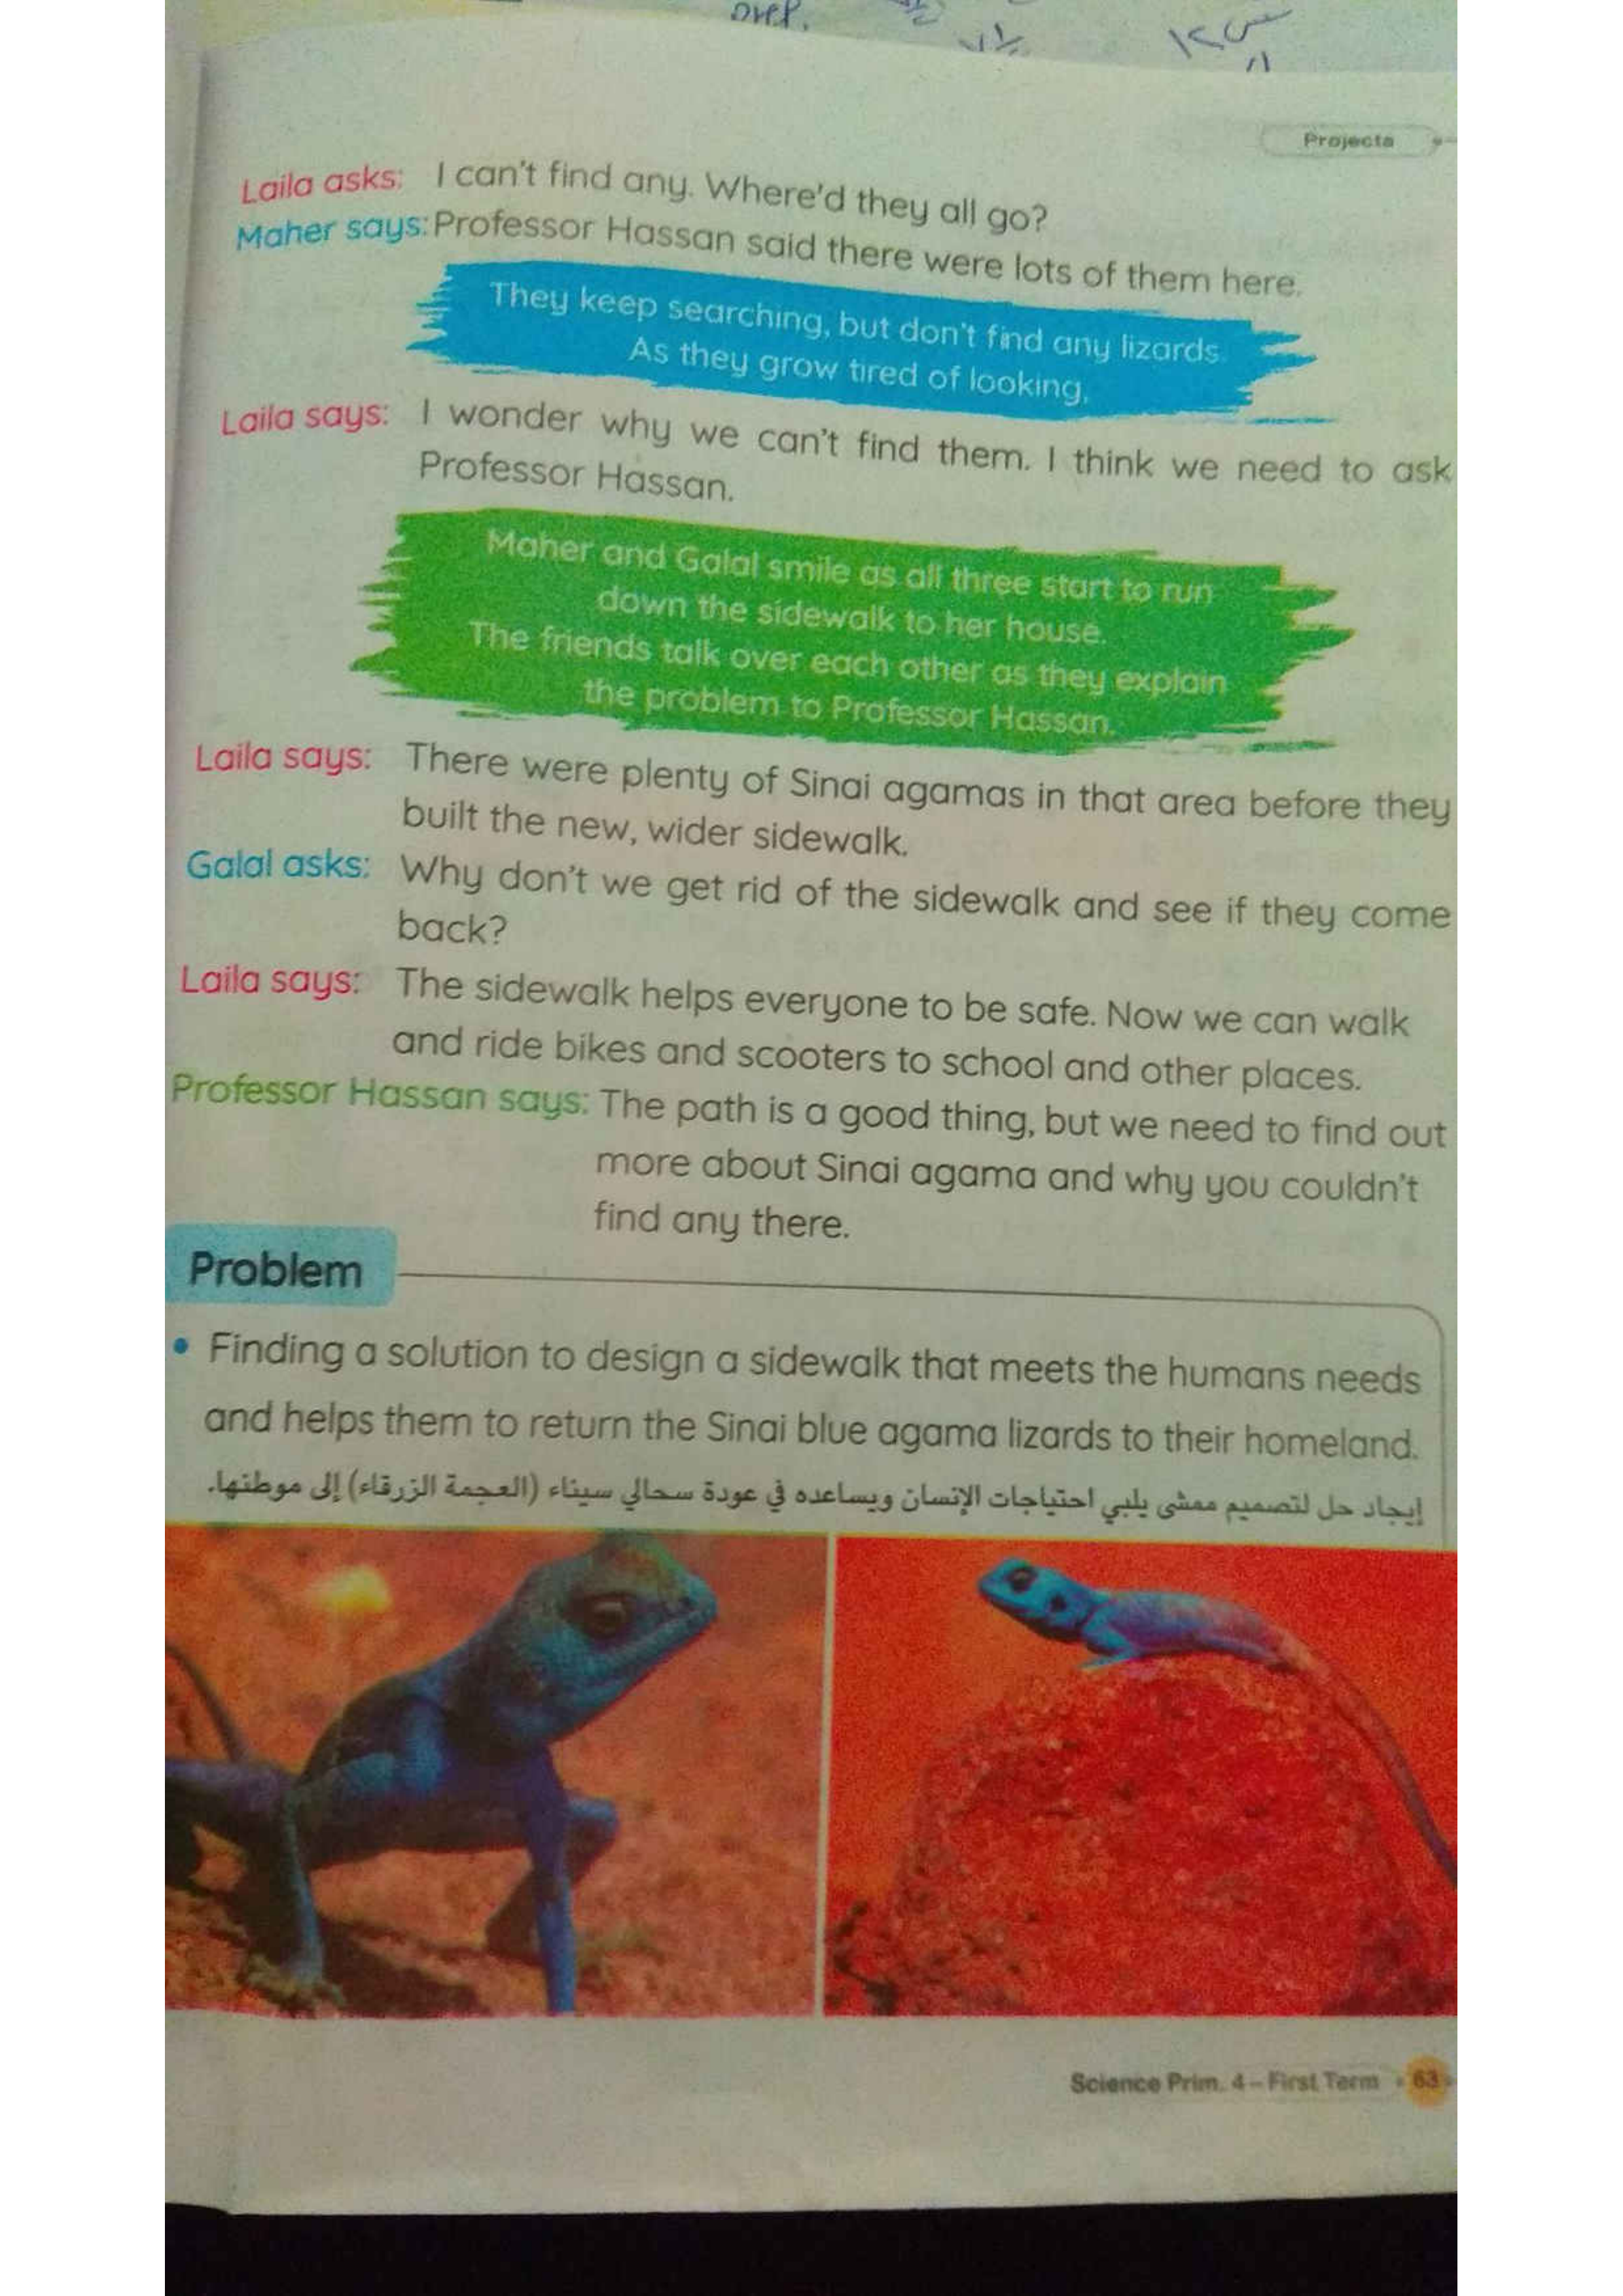 over.
Projects
Laila asks: I can't find any. Where'd they all go?
Maher says: Professor Hassan said there were lots of them here.
They keep searching, but don't find any lizards.
As they grow tired of looking,
Laila says: I wonder why we can't find them. I think we need to ask
Professor Hassan.
Maher and Galal smile as all three start to run
down the sidewalk to her house.
The friends talk over each other as they explain
the problem to Professor Hassan.
Laila says: There were plenty of Sinai agamas in that area before they
built the new, wider sidewalk.
Galal asks: Why don't we get rid of the sidewalk and see if they come
back?
Laila says: The sidewalk helps everyone to be safe. Now we can walk
and ride bikes and scooters to school and other places.
Professor Hassan says: The path is a good thing, but we need to find out
more about Sinai agama and why you couldn't
find any there.
Problem
• Finding a solution to design a sidewalk that meets the humans needs
and helps them to return the Sinai blue agama lizards to their homeland.
إيجاد حل لتصميم ممشى يلبي احتياجات الإنسان ويساعده في عودة سحالي سيناء (العجمة الزرقاء) إلى موطنها.
Science Prim. 4 – First Term • 63